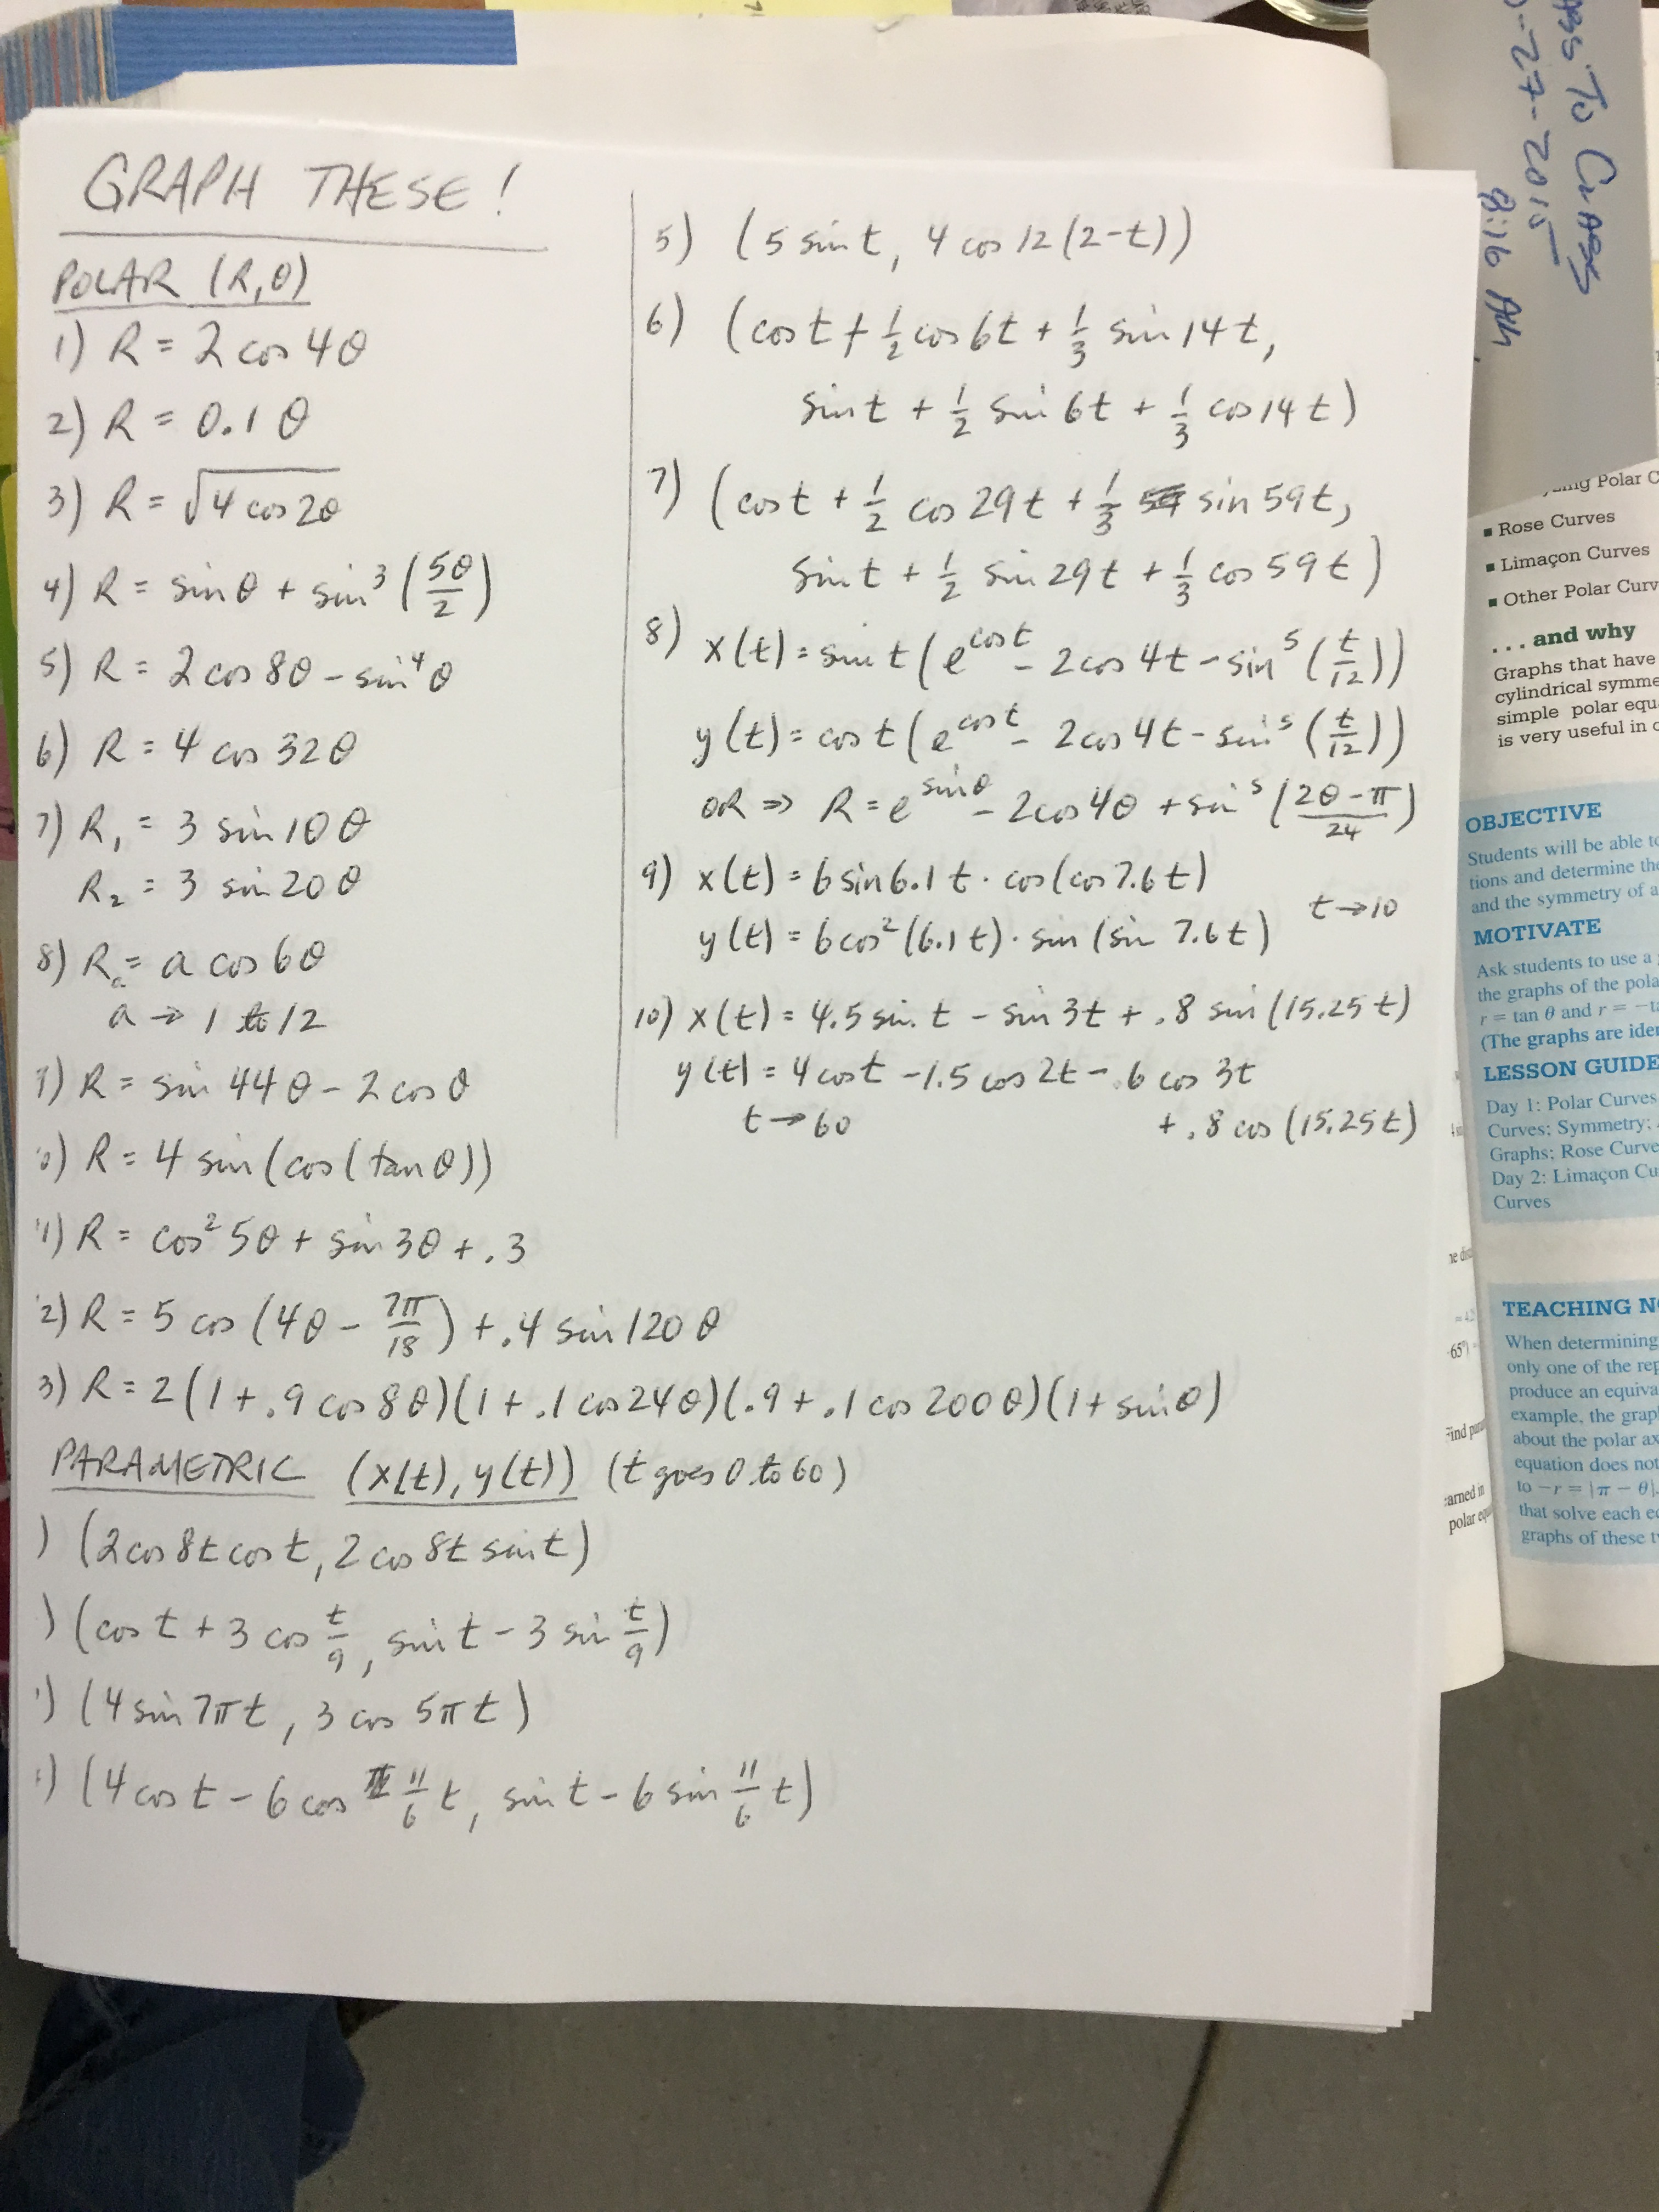 GRAPH THESE!
POLAR (R,θ)
1) R = 2 cos 4θ
2) R = 0.1 θ
3) R = √4 cos 2θ
4) R = sin θ + sin³ (5θ/2)
5) R = 2 cos 8θ - sin⁴ θ
6) R = 4 cos 32θ
7) R₁ = 3 sin 10 θ
R₂ = 3 sin 20 θ
8) Rₐ = a cos 6θ
a → 1 to 12
9) R = sin 44θ - 2 cos θ
0) R = 4 sin(cos(tan θ))
1) R = cos² 5θ + sin 3θ + .3
2) R = 5 cos (4θ - 7π/18) + .4 sin 120 θ
3) R = 2(1 + .9 cos 8θ)(1 + .1 cos 24θ)(.9 + .1 cos 200θ)(1 + sin θ)
PARAMETRIC (x(t), y(t)) (t goes 0 to 60)
) (2 cos 8t cos t, 2 cos 8t sin t)
) (cos t + 3 cos t/9, sin t - 3 sin t/9)
) (4 sin 7πt, 3 cos 5πt)
) (4 cos t - 6 cos 11/6 t, sin t - 6 sin 11/6 t)
5) (5 sin t, 4 cos 12(2-t))
6) (cos t + 1/2 cos 6t + 1/3 sin 14t,
sin t + 1/2 sin 6t + 1/3 cos 14t)
7) (cos t + 1/2 cos 29t + 1/3 sin 59t,
sin t + 1/2 sin 29t + 1/3 cos 59t)
8) x(t) = sin t (e^cos t - 2 cos 4t - sin⁵ (t/12))
y(t) = cos t (e^cos t - 2 cos 4t - sin⁵ (t/12))
OR ⇒ R = e^sin θ - 2 cos 4θ + sin⁵ (2θ - π/24)
9) x(t) = 6 sin 6.1 t · cos(cos 7.6t)
y(t) = 6 cos² (6.1t) · sin (sin 7.6t)
t → 10
10) x(t) = 4.5 sin t - sin 3t + .8 sin (15.25t)
y(t) = 4 cos t - 1.5 cos 2t - .6 cos 3t
t → 60 + .8 cos (15.25t)
To CLASS
-27-2015
8:16 AM
Polar C
▪ Rose Curves
▪ Limaçon Curves
▪ Other Polar Curv
. . . and why
Graphs that have
cylindrical symme
simple polar equa
is very useful in c
OBJECTIVE
Students will be able to
tions and determine the
and the symmetry of a
MOTIVATE
Ask students to use a
the graphs of the pola
r = tan θ and r = -ta
(The graphs are iden
LESSON GUIDE
Day 1: Polar Curves
Curves; Symmetry;
Graphs; Rose Curve
Day 2: Limaçon Cu
Curves
TEACHING NO
When determining
only one of the rep
produce an equiva
example, the grap
about the polar ax
equation does not
to -r = |π - θ|.
that solve each eq
graphs of these t
Find para
earned in
polar equ